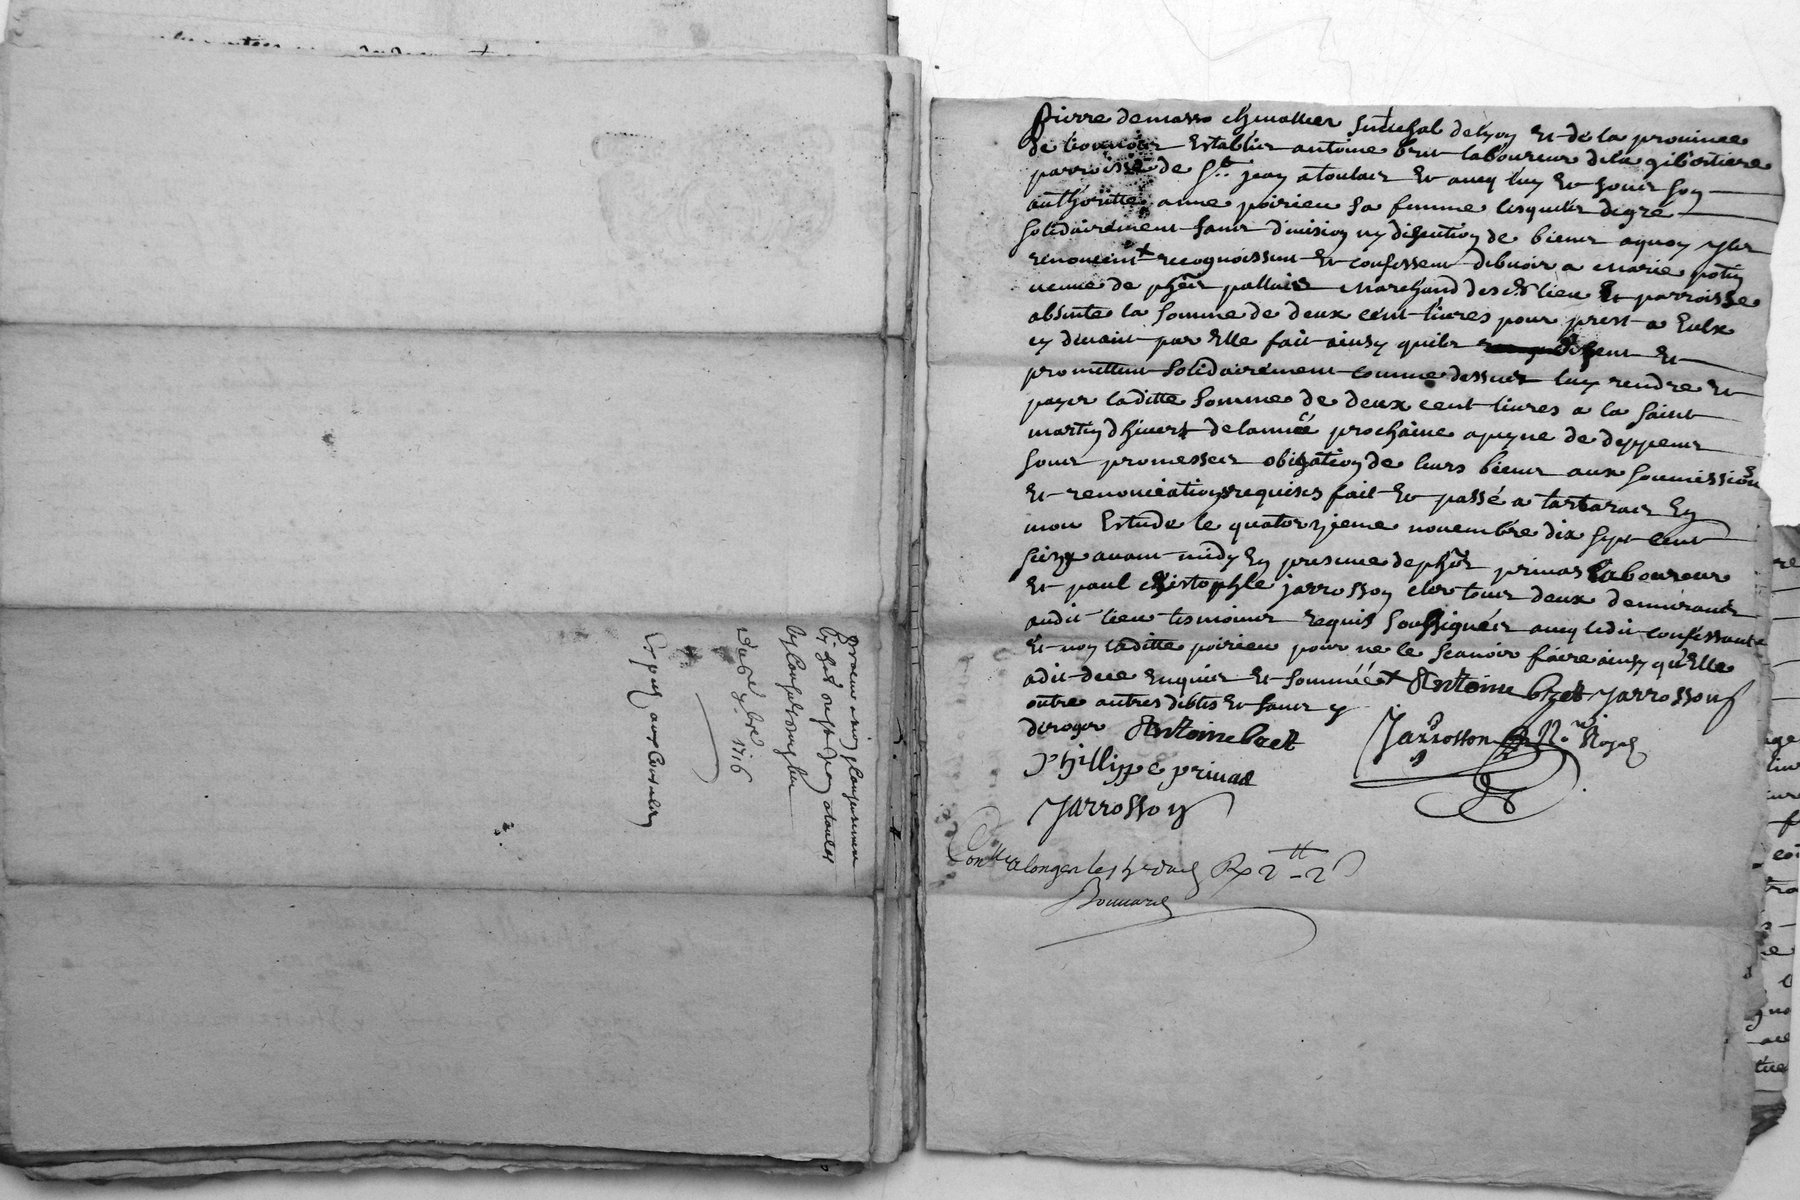 Pierre demasso chevallier senechal delyon et de la province
de lionnois Establis antoine bret laboureur de la gibertiere
parroisse de St. jean atoulas et avecq luy et sous son
authoritte anne poirieu sa femme lesquels de gré
solidairement sans division ny discution de biens aquoy yls
renoncent recognoissent et confessent debvoir a marie potin
veuve de pher palluis marchand desd lieu et parroisse
absente la somme de deux cent livres pour prest a Eulx
cy devant par Elle fait ainsy quils disent et
promettent solidairement comme dessus luy rendre et
payer laditte somme de deux cent livres a la saint
martin dhivers de lannéé prochaine apeyne de deppens
sous promesses obligation de leurs biens aux soumissions
et renonciations requises fait et passé a tartaras En
mon Estude le quatorzieme novembre dix sept cent
seize avant midy En presence de pher privas laboureur
et paul christophle jarrosson clerc tous deux demeurants
audit lieu tesmoins requis soussignés avecq ledit confessant
et non laditte poirieu pour ne le scavoir faire ainsy qu'Elle
a dit de ce Enquise et sommééx Antoine bret Jarrosson
outre autres debtes et sans y
deroger Antoine bret
Phillippe privas
Jarrosson
Jarrosson No. Royal
Conlle a longes les R 2tt-2s
Bonnard
1716